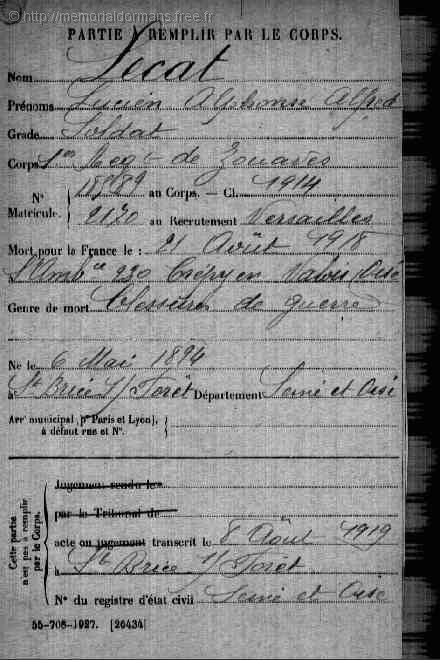 © http://memorialdormans.free.fr
PARTIE À REMPLIR PAR LE CORPS.
Nom Lecat
Prénoms Lucien Alphonse Alfred
Grade Soldat
Corps 1er Regt de Zouaves
N° Matricule. au Corps. — Cl. 1914
2120 au Recrutement Versailles
Mort pour la France le : 21 Août 1918
à l'Amb ce 220 Crépy en Valois (Oise
Genre de mort blessures de guerre
Né le 6 Mai 1894
à St Brice S/ Forêt Département Seine et Oise
Arrt municipal (pr Paris et Lyon),
à défaut rue et N°.
Cette partie n'est pas à remplir par le Corps.
Jugement rendu le
par le Tribunal de
acte ou jugement transcrit le 8 Août 1919
à St Brice S/ Forêt
N° du registre d'état civil Seine et Oise
55-708-1927. [26434]